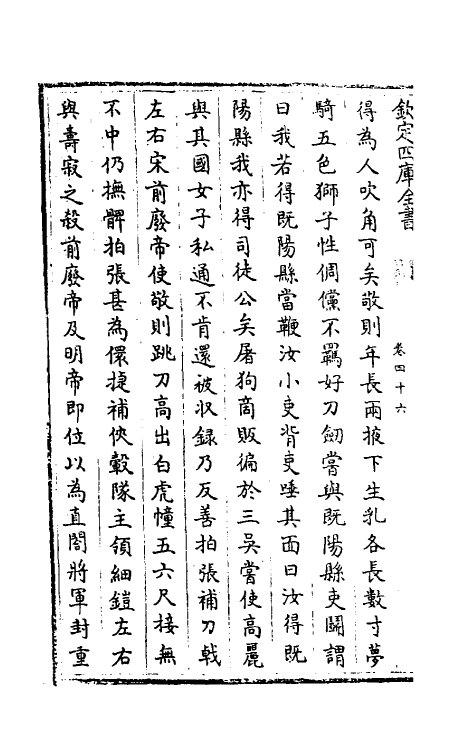 欽定四庫全書
卷四十六
得為人吹角可矣敬則年長兩掖下生乳各長數寸夢
騎五色獅子性倜儻不羈好刀劒嘗與既陽縣吏鬬謂
曰我若得既陽縣當鞭汝小吏背吏唾其面曰汝得既
陽縣我亦得司徒公矣屠狗啇販徧於三吳嘗使高麗
與其國女子私通不肯還被收録乃反善拍張補刀戟
左右宋前廢帝使敬則跳刀高出白虎幢五六尺接無
不中仍撫髀拍張甚為儇捷補俠轂隊主領細鎧左右
與壽寂之殺前廢帝及明帝即位以為直閤將軍封重